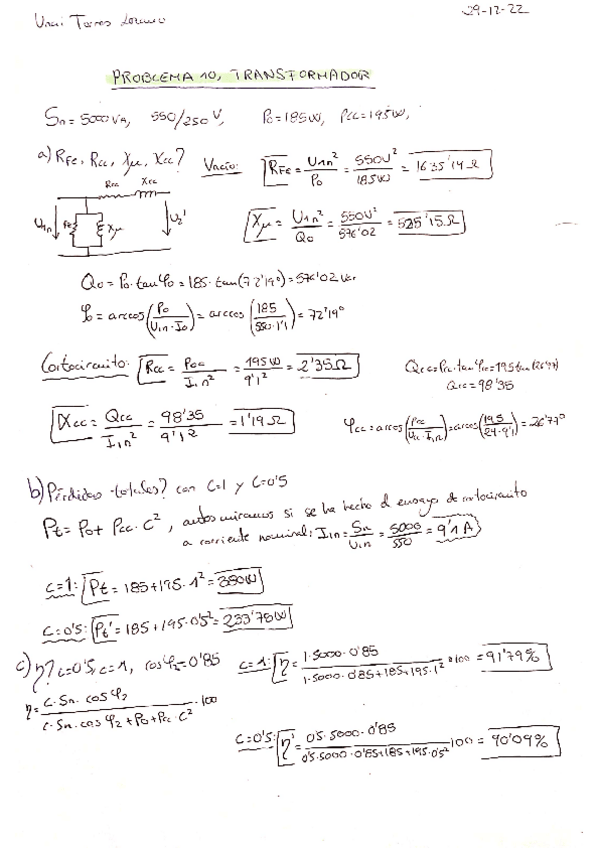 Unai Torres Lozano
29-12-22
PROBLEMA 10, TRANSFORMADOR
Sn=5000VA, 550/250V, Po=185W, Pcc=195W,
a) RFe, Rcc, Xμ, Xcc? Vacío: RFe = U1n²/Po = 550V²/185W = 1635'14Ω
Rcc Xcc
U1n Fe Xμ U2'
Xμ = U1n²/Qo = 550V²/576'02 = 525'15Ω
Qo = Po·tanφo = 185·tan(72'19°) = 576'02 Var
φo = arccos(Po/(U1n·Io)) = arccos(185/(550·1'1)) = 72'19°
Cortocircuito: Rcc = Pcc/I1n² = 195W/9'1² = 2'35Ω
Qcc=Pcc·tanφcc=195tan(26'77)
Qcc=98'35
Xcc = Qcc/I1n² = 98'35/9'1² = 1'19Ω
φcc=arcos(Pcc/(Ucc·I1n))=arcos(195/(24·9'1))=26'77°
b) Pérdidas totales? con C=1 y C=0'5
Pt = Po + Pcc·C², antes miramos si se ha hecho el ensayo de cortocircuito
a corriente nominal: I1n = Sn/U1n = 5000/550 = 9'1A
C=1: Pt = 185+195·1² = 380W
C=0'5: Pt' = 185+195·0'5² = 233'75W
c) η? C=0'5, C=1, cosφ2=0'85 C=1: η = 1·5000·0'85/(1·5000·0'85+185+195·1²)·100 = 91'79%
η = C·Sn·cosφ2/(C·Sn·cosφ2+Po+Pcc·C²)·100
C=0'5: η' = 0'5·5000·0'85/(0'5·5000·0'85+185+195·0'5²)·100 = 90'09%